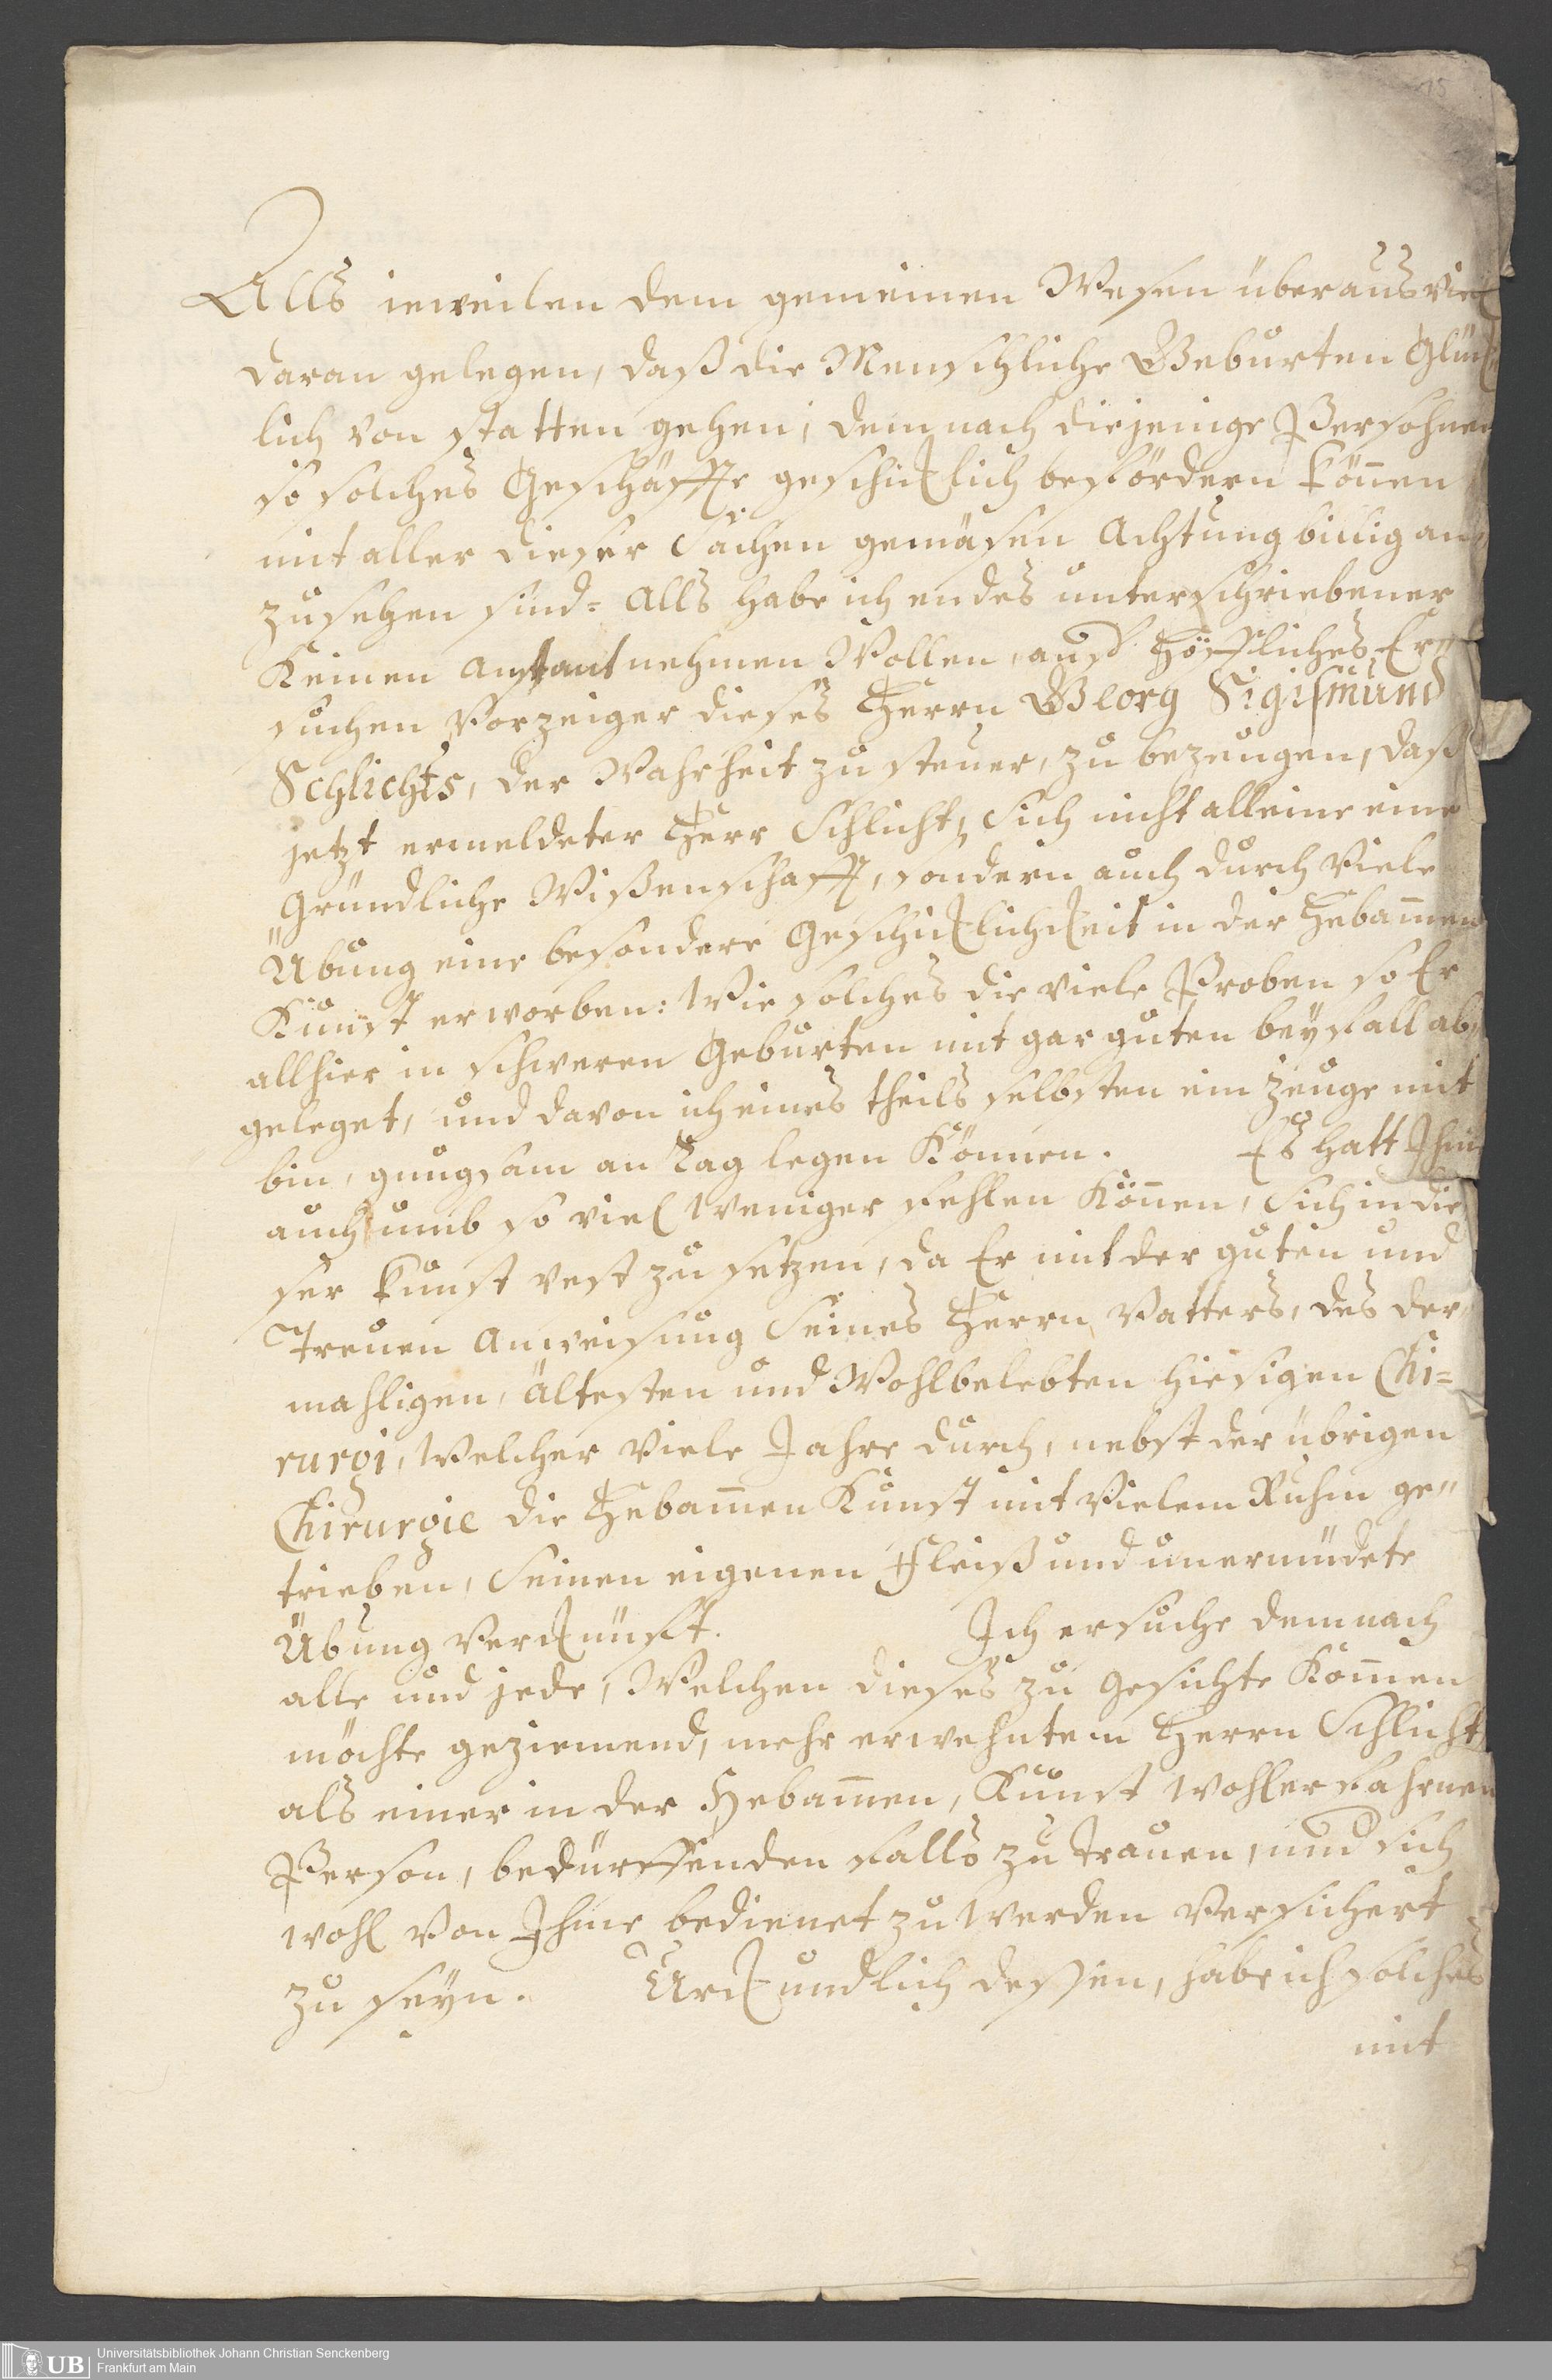 15
Alls ieweilen dem gemeinen Wesen überaus viel
daran gelegen, daß die Menschliche Geburten Glück
lich von statten gehen; demnach diejenige Persohnen
so solches Geschäffte geschicklich befördern können
mit aller dieser Sachen gemäsen Achtung billig an„
zusehen sind: Alls habe ich endes unterschriebener
Keinen anstant nehmen Wollen, auf höffliches Er„
suchen Vorzeiger dieses Herrn Georg Sigismund
Schlichts, der Wahrheit zu steuer, zu bezeugen, daß
jetzt ermeldeter Herr Schlicht, Sich nicht alleine eine
Gründliche Wißenschafft, sondern auch durch Viele
Übung eine besondere Geschicklichkeit in der Hebam̅en
Kunst erworben: Wie solches die viele Proben so Er
allhier in schweren Geburten mit gar guten beyfall ab„
geleget, und davon ich eines theils selbsten ein Zeuge mit
bin, gnugsam an Tag legen Können. Es hatt Ihm
auch umb so viel Weniger fehlen Kön̅en, Sich in die
ser Kunst vest zu setzen, da Er mit der guten und
Treuen Anweisung Seines Herrn Vatters, des der„
mahligen, Ältesten und Wohlbelebten hiesigen Chi=
rurgi, Welcher Viele Jahre durch, nebst der übrigen
Chirurgie die Hebam̅en Kunst mit Vielem Ruhm ge„
trieben, Seinen eigenen Fleiß und unermüdete
Übung Verknüpft. Ich ersuche demnach
alle und jede, Welchen dieses zu Gesichte Kom̅en
möchte geziemend, mehr erwehntem Herrn Schlicht
als einer in der Hebam̅en, Kunst Wohlerfahrnen
Person, bedürffenden falls zu trauen, und sich
wohl Von Ihme bedienet zu Werden Versichert
zu seyn. Urkundlich dessen, habe ich solches
mit
UB Universitätsbibliothek Johann Christian Senckenberg
Frankfurt am Main